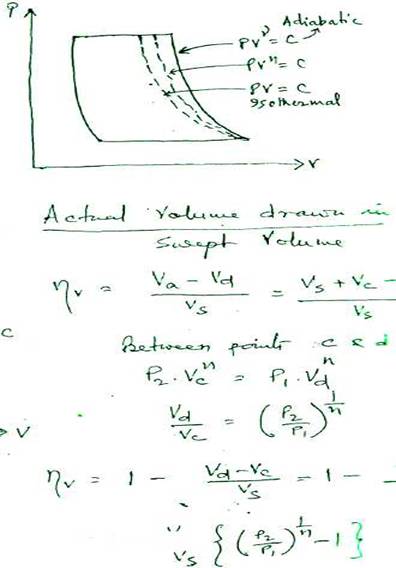 P
Adiabatic
PV^γ = C
PV^n = C
PV = C
Isothermal
V
Actual Volume drawn in
Swept Volume
ηv = (Va - Vd)/Vs = (Vs + Vc -)/Vs
C
Between points c & d
P2 . Vc^n = P1 . Vd^n
Vd/Vc = (P2/P1)^(1/n)
V
ηv = 1 - (Vd - Vc)/Vs = 1 -
Vs { (P2/P1)^(1/n) - 1 }